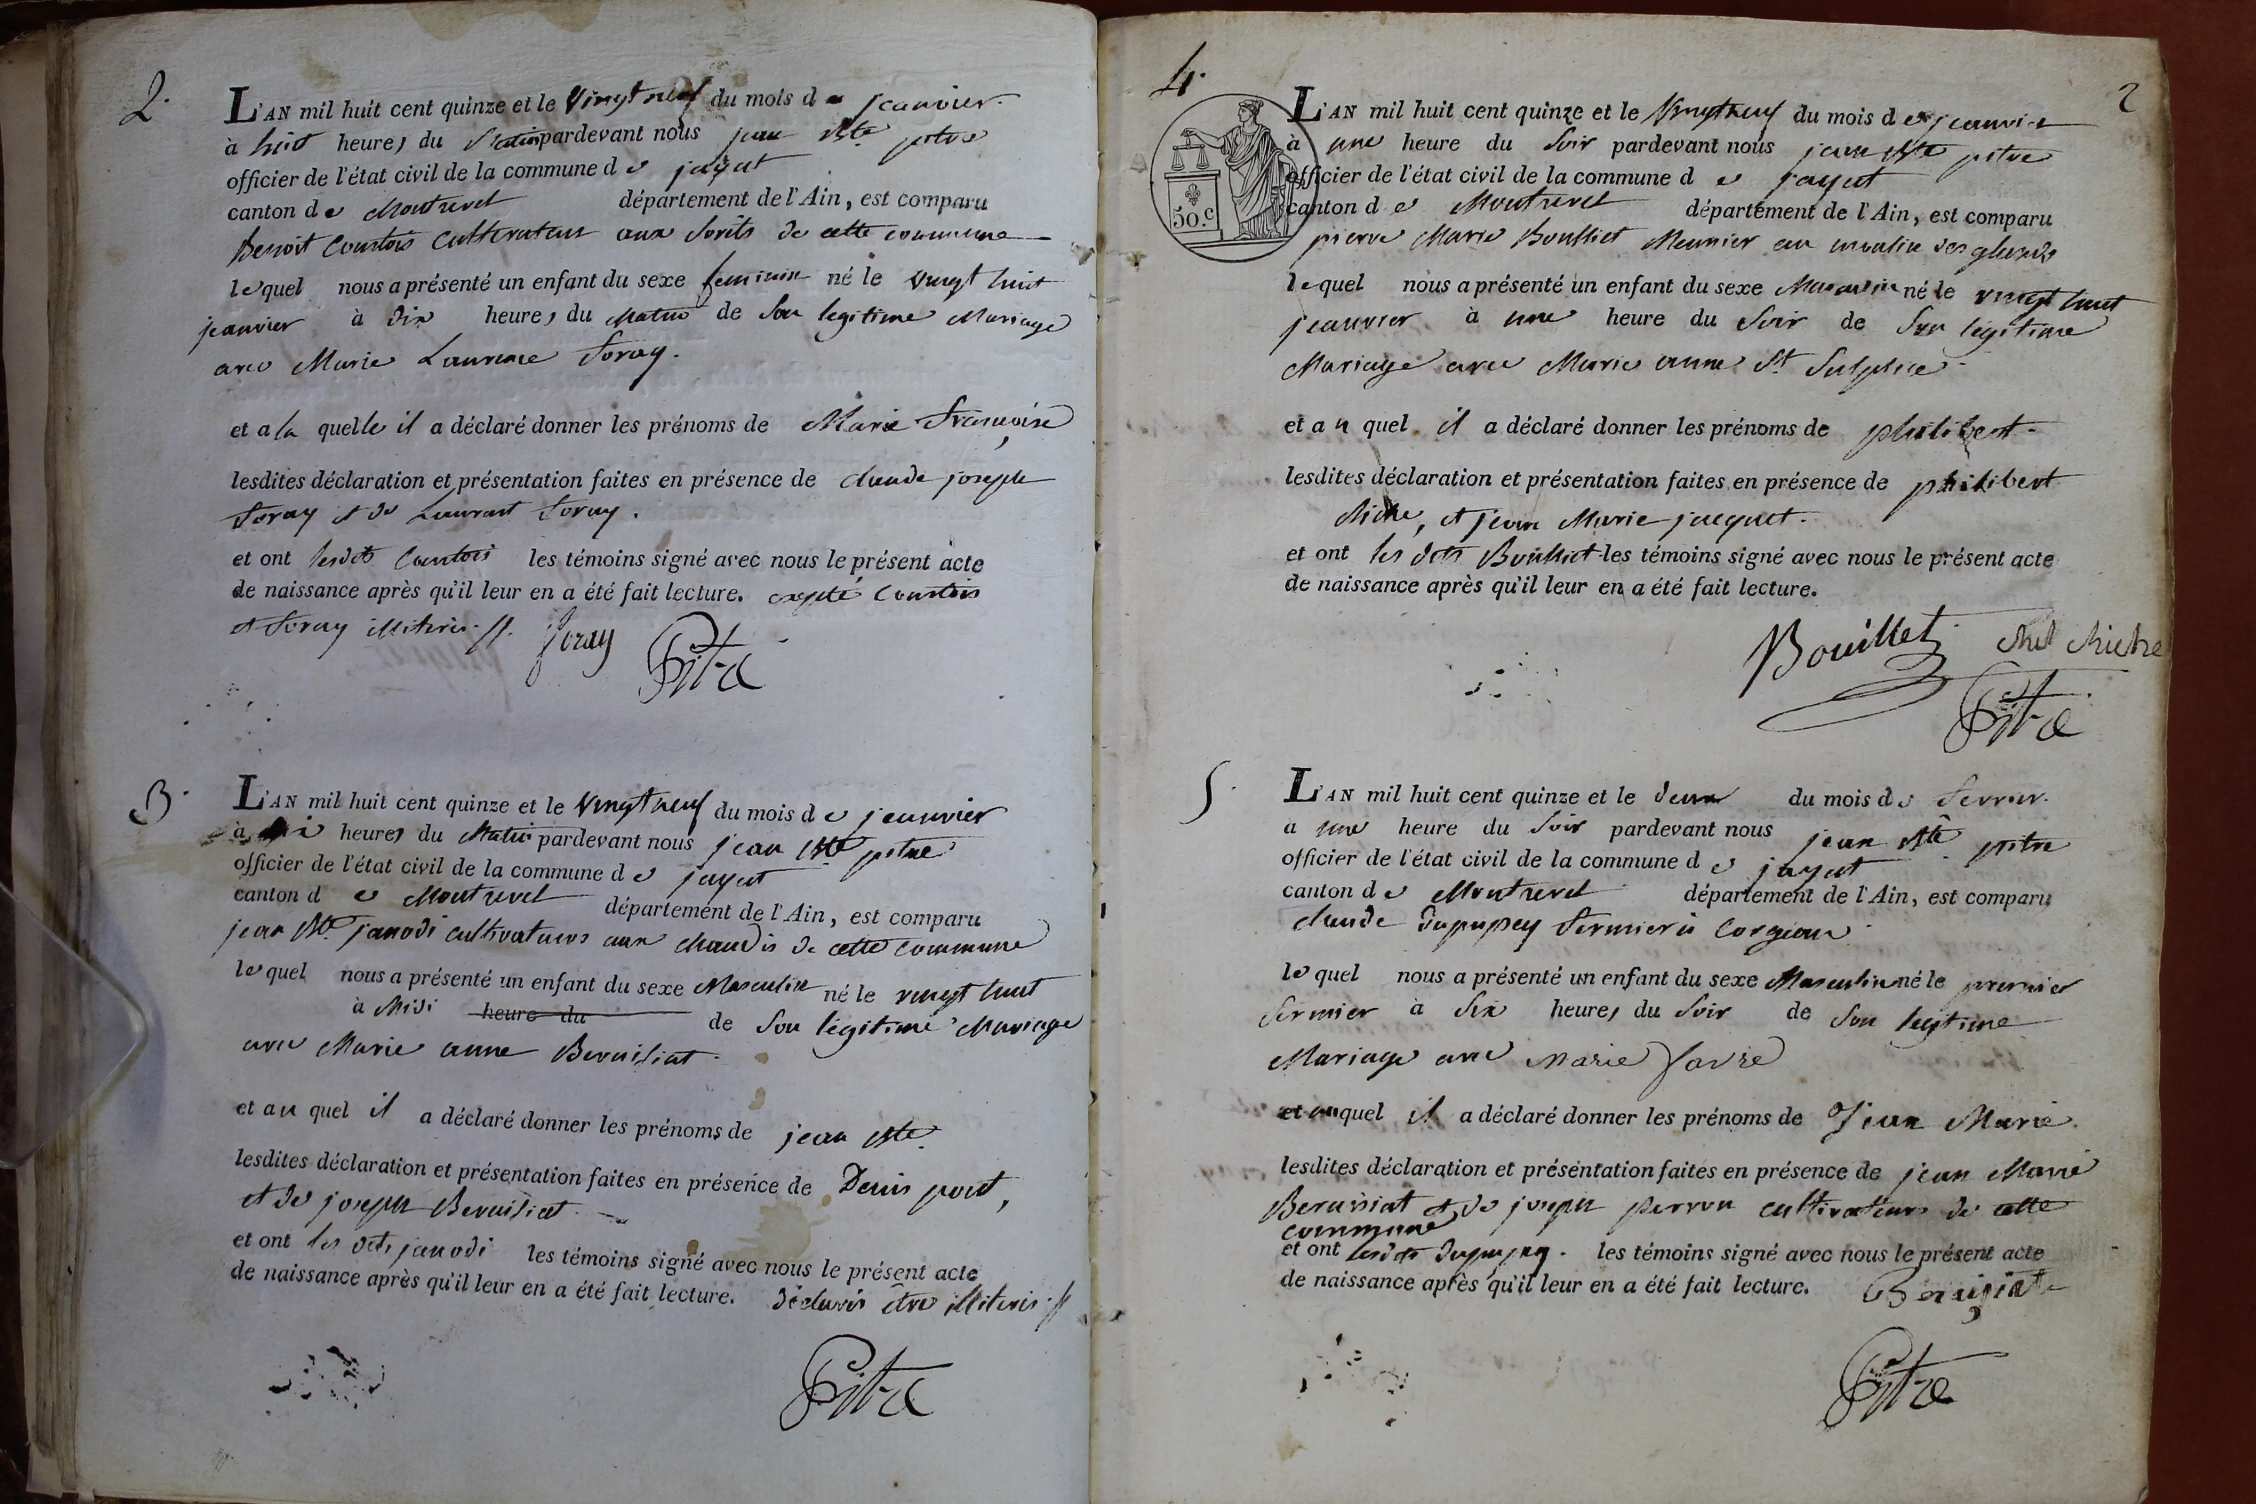 2.
L'AN mil huit cent quinze et le vingt neuf du mois de janvier.
à huit heures du Matin pardevant nous jean Bte pitre
officier de l'état civil de la commune de jayat
canton de Montrevel département de l'Ain, est comparu
Benoit Courtois cultivateur aux Sorits de cette commune
lequel nous a présenté un enfant du sexe feminin né le vingt huit
janvier à dix heures du matin de Son legitime Mariage
avec Marie Laurence Foray.
et a la quelle il a déclaré donner les prénoms de Marie Francoise
lesdites déclaration et présentation faites en présence de claude joseph
Foray et de Laurent Foray.
et ont lesdts Courtois les témoins signé avec nous le présent acte
de naissance après qu'il leur en a été fait lecture. excepté Courtois
et Foray illiteris.
Foray Pitre
3.
L'AN mil huit cent quinze et le vingt neuf du mois de janvier
à heures du Matin pardevant nous jean Bte pitre
officier de l'état civil de la commune de jayat
canton de Montrevel département de l'Ain, est comparu
jean Bte janodi cultivateurs aux chaudis de cette commune
lequel nous a présenté un enfant du sexe Masculin né le vingt huit
à Midi heure du de Son légitime Mariage
avec Marie anne Beruisiat.
et au quel il a déclaré donner les prénoms de jean Bte.
lesdites déclaration et présentation faites en présence de Denis pont,
et de joseph Beruisiat.
et ont les dts janodi les témoins signé avec nous le présent acte
de naissance après qu'il leur en a été fait lecture. déclarés être illiteris
Pitre
4.
2
50.c
L'AN mil huit cent quinze et le vingt neuf du mois de janvier
à une heure du Soir pardevant nous jean Bte pitre
officier de l'état civil de la commune de jayat
canton de Montrevel département de l'Ain, est comparu
pierre Marie Boulliet Meunier au moulin des glands
lequel nous a présenté un enfant du sexe Masculin né le vingt huit
janvier à une heure du Soir de Son légitime
Mariage avec Marie anne St Sulpice.
et au quel il a déclaré donner les prénoms de philibert.
lesdites déclaration et présentation faites en présence de philibert
Miche, et jean Marie jacquet.
et ont les dts Boulliet les témoins signé avec nous le présent acte
de naissance après qu'il leur en a été fait lecture.
Bouillet
Pitre
5.
L'AN mil huit cent quinze et le deux du mois de Fevrier.
à une heure du Soir pardevant nous jean Bte pitre
officier de l'état civil de la commune de jayat
canton de Montrevel département de l'Ain, est comparu
claude Dupupey Fermier à Corgioux
lequel nous a présenté un enfant du sexe Masculin né le premier
Fevrier à Six heures du Soir de Son legitime
Mariage avec Marie Favre
et au quel il a déclaré donner les prénoms de Jean Marie.
lesdites déclaration et présentation faites en présence de jean Marie
Beruisiat et de joseph perron cultivateurs de cette
commune
et ont lesdts Dupupey. les témoins signé avec nous le présent acte
de naissance après qu'il leur en a été fait lecture. Beruisiat
Pitre